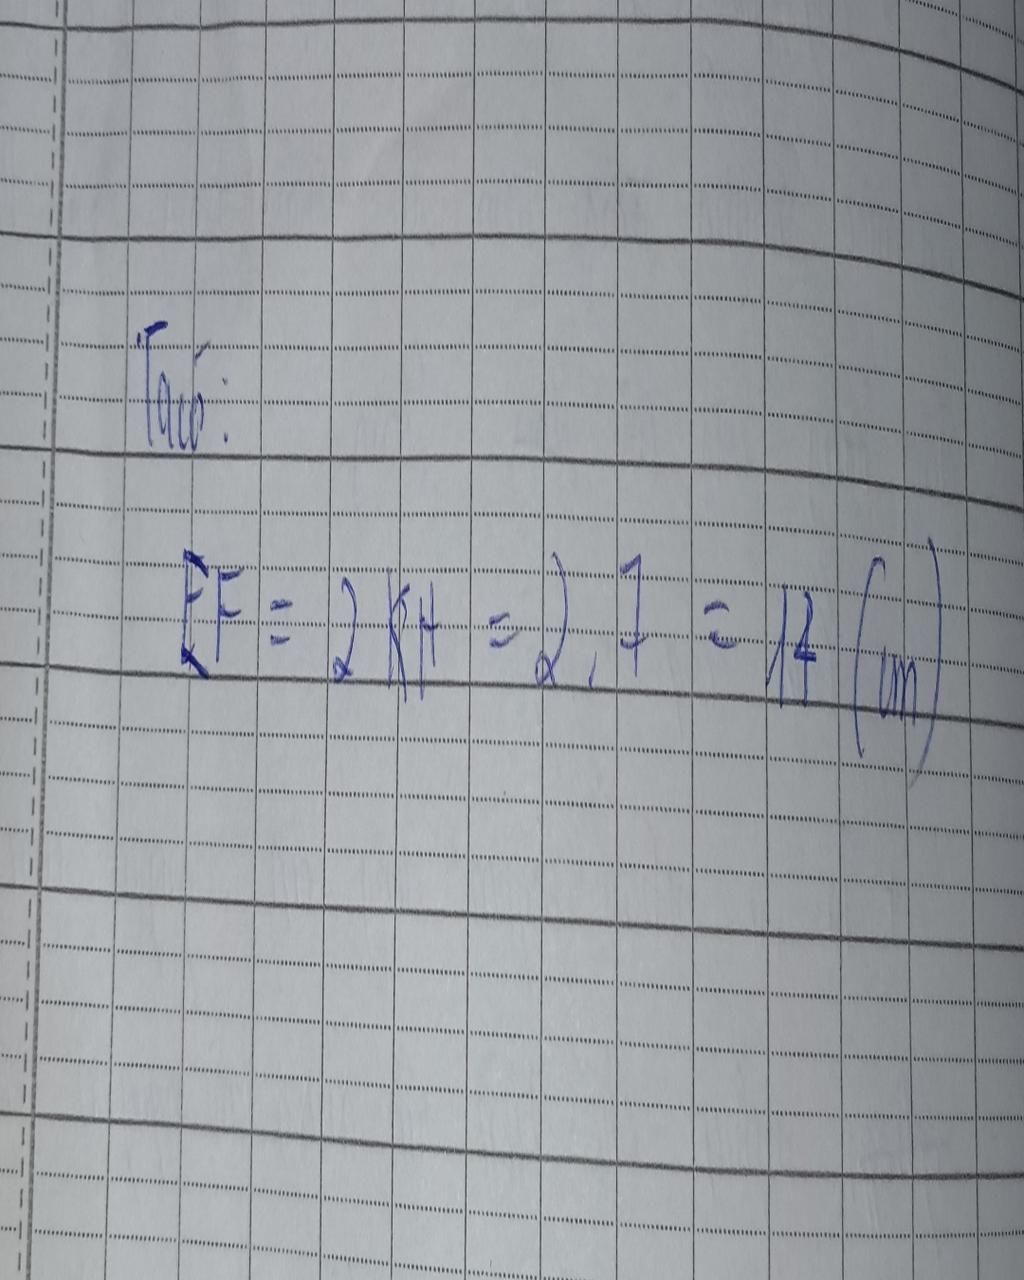 Ta có:
EF = 2 KH = 2.7 = 14 (cm)